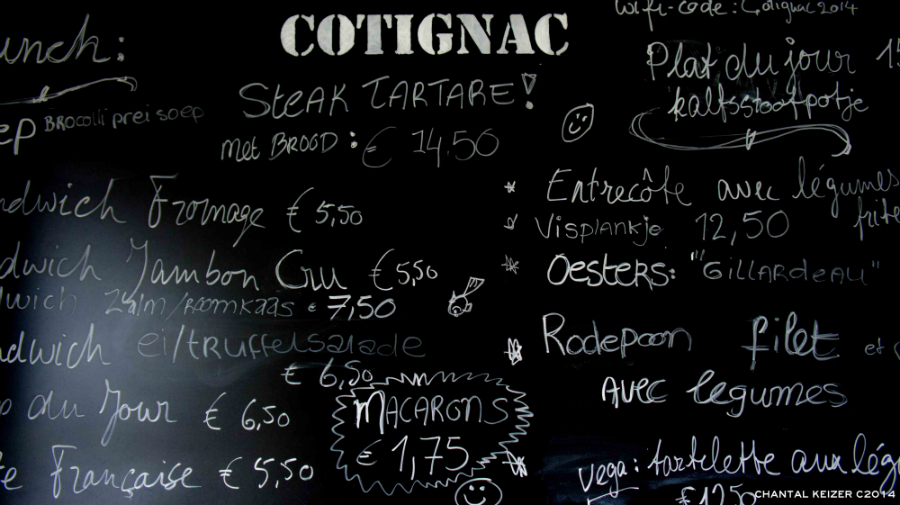 COTIGNAC
wifi-code: Cotignac 2014
unch:
STEAK TARTARE!
met BROOD: € 14.50
ep BROCOLLI prei soep
ndwich Fromage € 5,50
dwich Jambon Cru € 5,50
wich Zalm/ROOMKAAS € 7,50
dwich ei/TRUFFELSALADE
€ 6,50
du Jour € 6,50
e Française € 5,50
MACARONS
€ 1,75
Plat du jour 15
kalfsstoofpotje
Entrecôte avec légumes
frite
Visplankje 12,50
OESTERS: "GILLARDEAU"
Rodepoon filet et
AVEC legumes
vega: tartelette aux lég
€ 12,50
CHANTAL KEIZER C2014